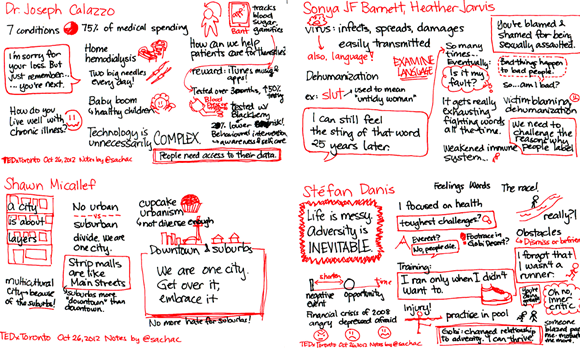 Dr. Joseph Calazzo
7 conditions 75% of medical spending
I'm sorry for
your loss. But
just remember...
...you're next.
Home
hemodialysis
Two big needles
every day!
Bant
tracks
blood
sugar
gamifies
How can we help
patients care for themselves?
reward: iTunes music &
app!
Tested over 3 months, +50% testing
Blood
Pressure
tested w/
Blackberry
20% lower
Behavioural intervention
awareness & self-care
How do you
live well with
chronic illness?
Baby boom
4 healthy children
Technology is
unnecessarily COMPLEX
People need access to their data.
TEDxToronto Oct 26, 2012 Notes by @sachac
Sonya JF Barnett, Heather Jarvis
virus: infects, spreads, damages
easily transmitted
also, language!
EXAMINE
LANGUAGE
Dehumanization
ex: slut used to mean
"untidy woman"
I can still feel
the sting of that word
25 years later.
So many
times...
Eventually:
Is it my
fault?
It gets really
exhausting
fighting words
all the time.
Weakened immune
system...
You're blamed &
shamed for being
sexually assaulted.
Bad things happen
to bad people.
So... am I bad?
Victim-blaming,
dehumanization
we need to
challenge the
reasons why
people label
TEDxToronto Oct 26, 2012 Notes by @sachac
Shawn Micallef
a city
is about
layers
No urban
vs
suburban
divide. We are
one city.
Strip malls
are like
Main Streets
multicultural
city because
of the suburbs!
suburbs more
"downtown" than
downtown.
cupcake
urbanism
not diverse enough
Downtown & suburbs
We are one city.
Get over it,
embrace it
No more hate for suburbs!
TEDxToronto Oct 26, 2012 Notes by @sachac
Stéfan Danis
Life is messy.
Adversity is
INEVITABLE.
shorten
time
negative
event
opportunity
Financial crisis of 2008
angry depressed afraid
Feelings Words The race!
I focused on health
toughest challenges?
Everest?
No, people die.
Footrace in
Gobi Desert?
Training:
I ran only when I didn't
want to.
Injury!
practice in pool
Gobi changed relationship
to adversity. I can thrive.
really?!
Obstacles
Dismiss or befriend
I forgot that
I wasn't a
runner.
Oh no,
inner
critic
someone
blazed past
me
TEDxToronto Oct 26, 2012 Notes by @sachac